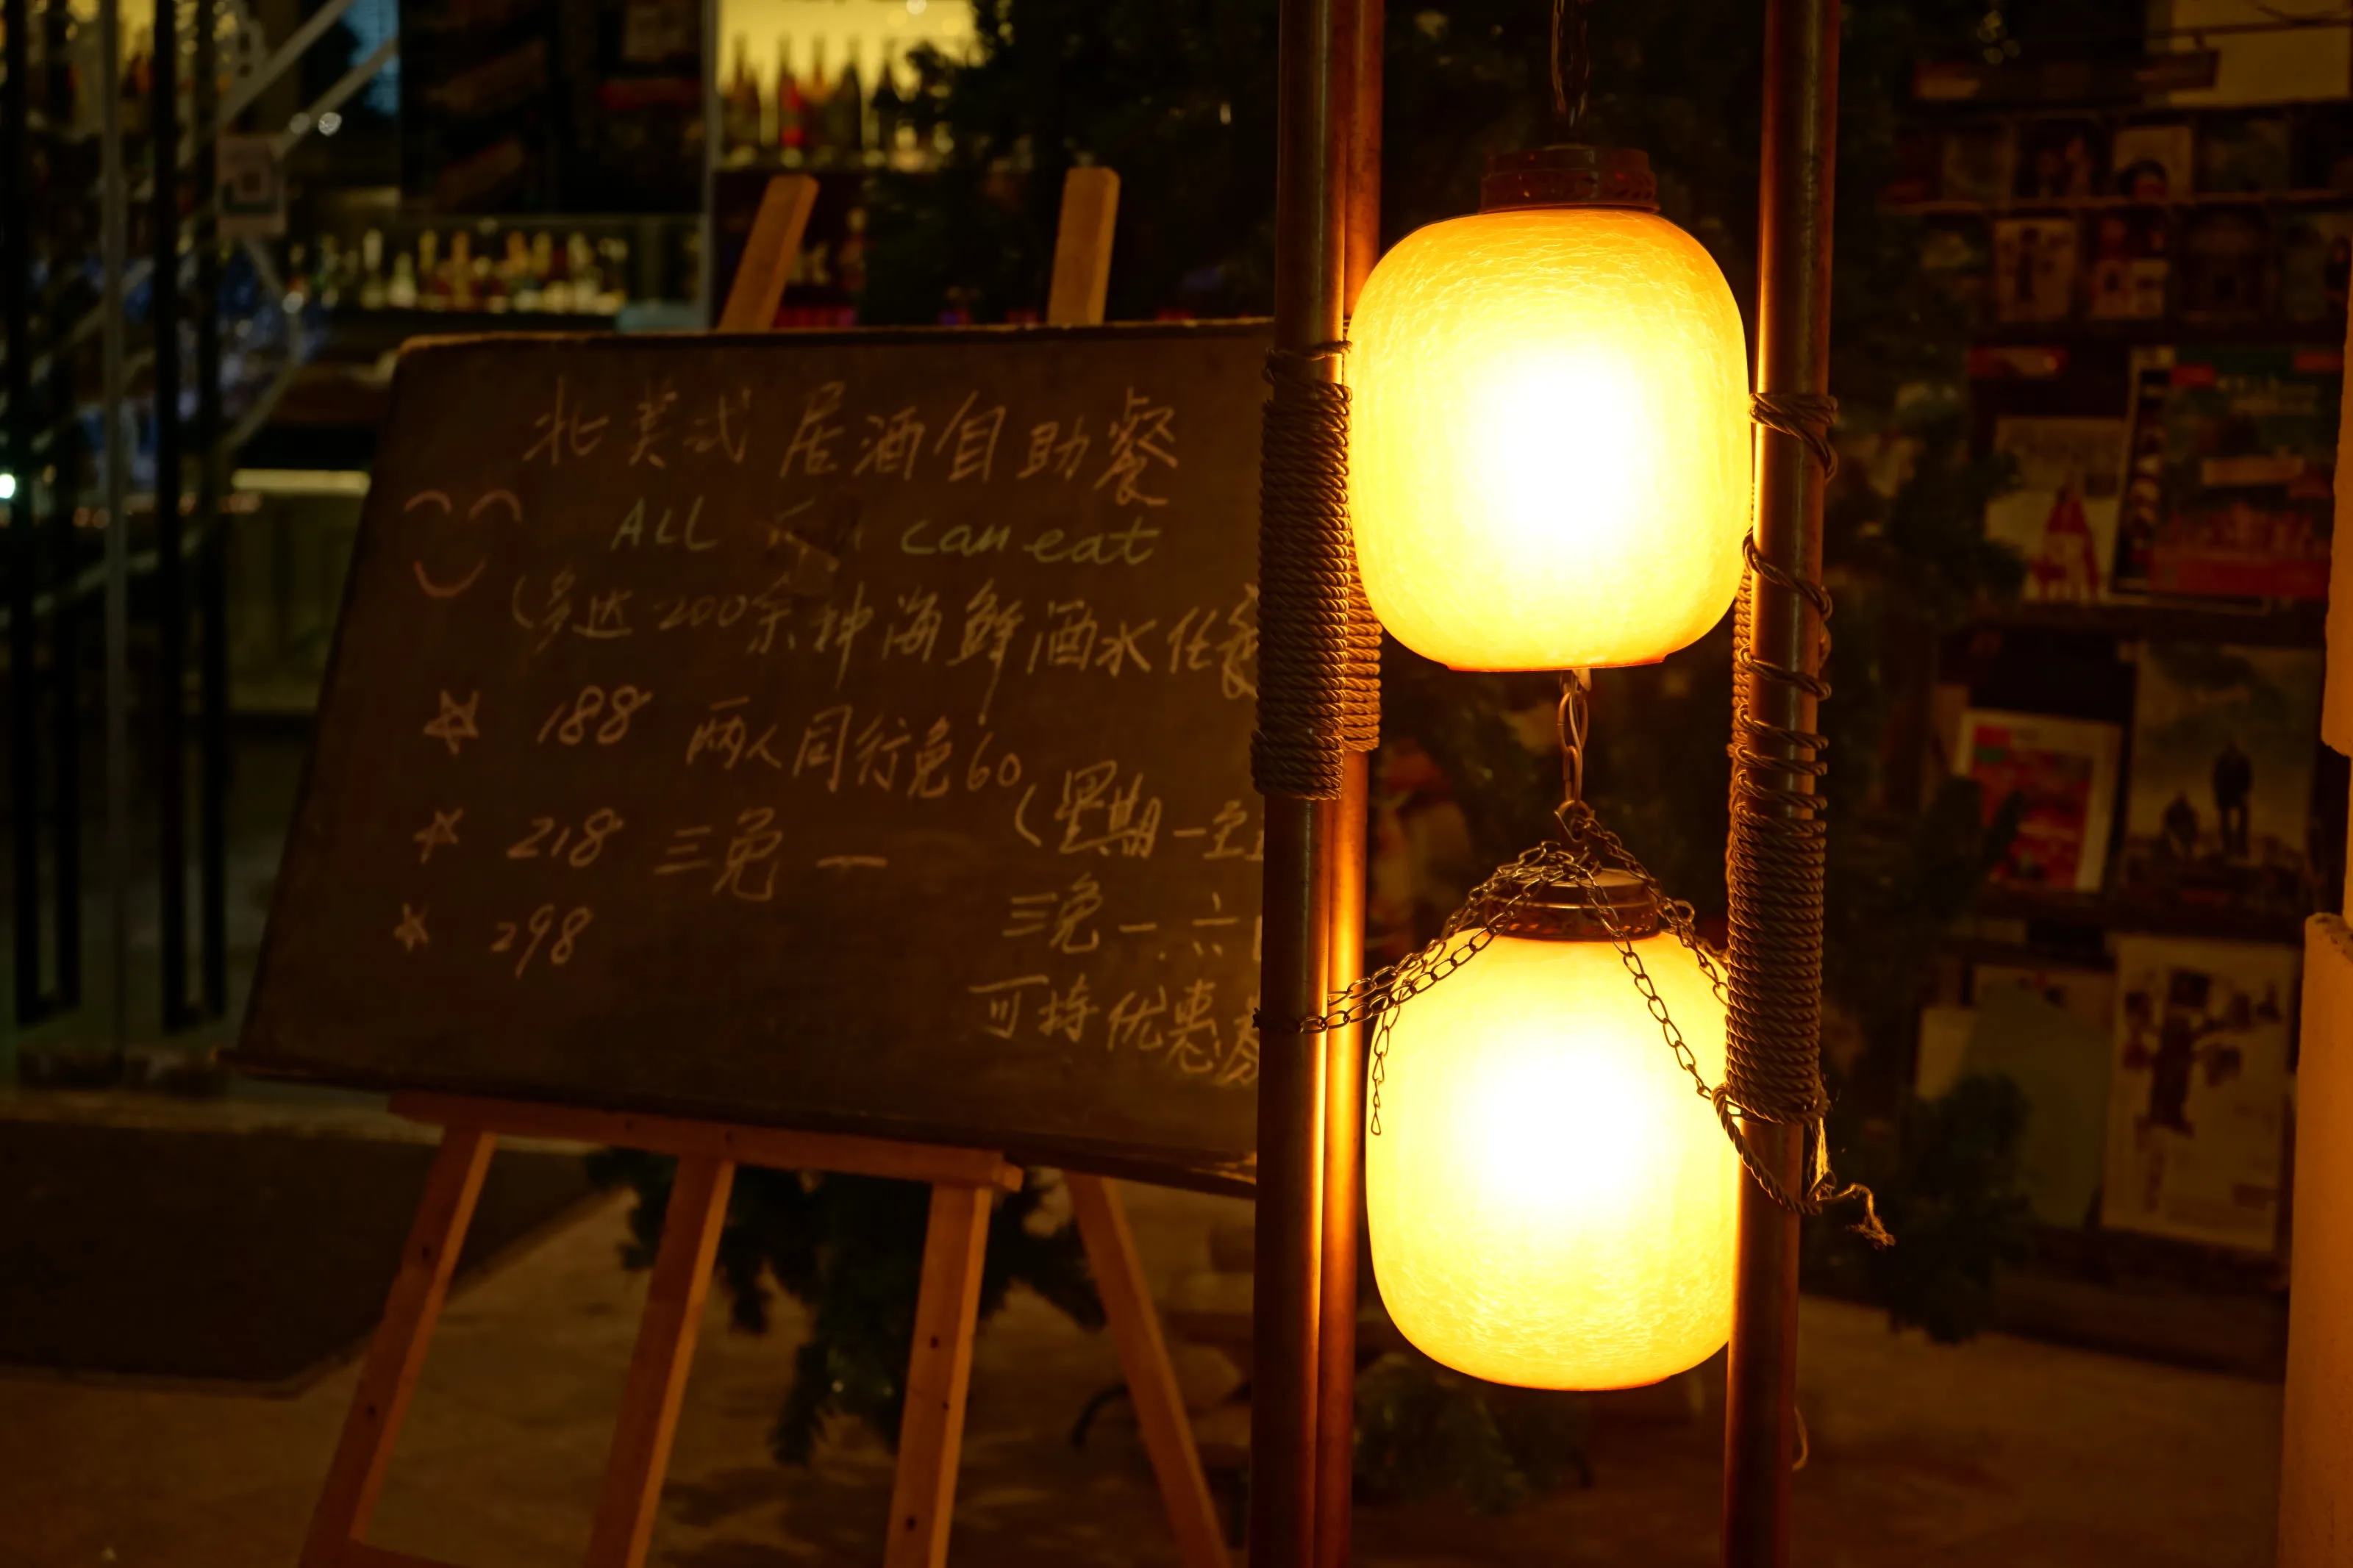 北美式居酒自助餐
ALL can eat
(多达200余种海鲜酒水任
188 两人同行免60
218 三免一 (星期一至五
298 三免一.六日
可持优惠券